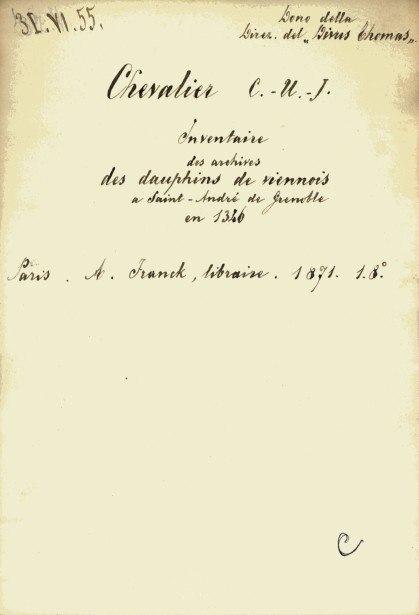 31.VI.55.
Dono della
Direz. del "Divus Thomas".
Chevalier C.-U.-J.
Inventaire
des archives
des dauphins de viennois
a Saint-André de Grenoble
en 1346
Paris. A. Franck, libraire. 1871. 18°.
C